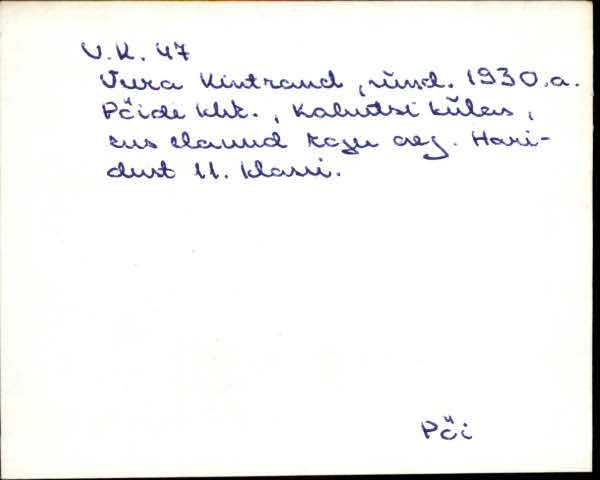 V.K. 47
Vera Kintraud, sünd. 1930.a.
Pöide khk., Kahutsi külas,
kus elanud kogu aeg. Hari-
dust 11. klassi.
Pöi